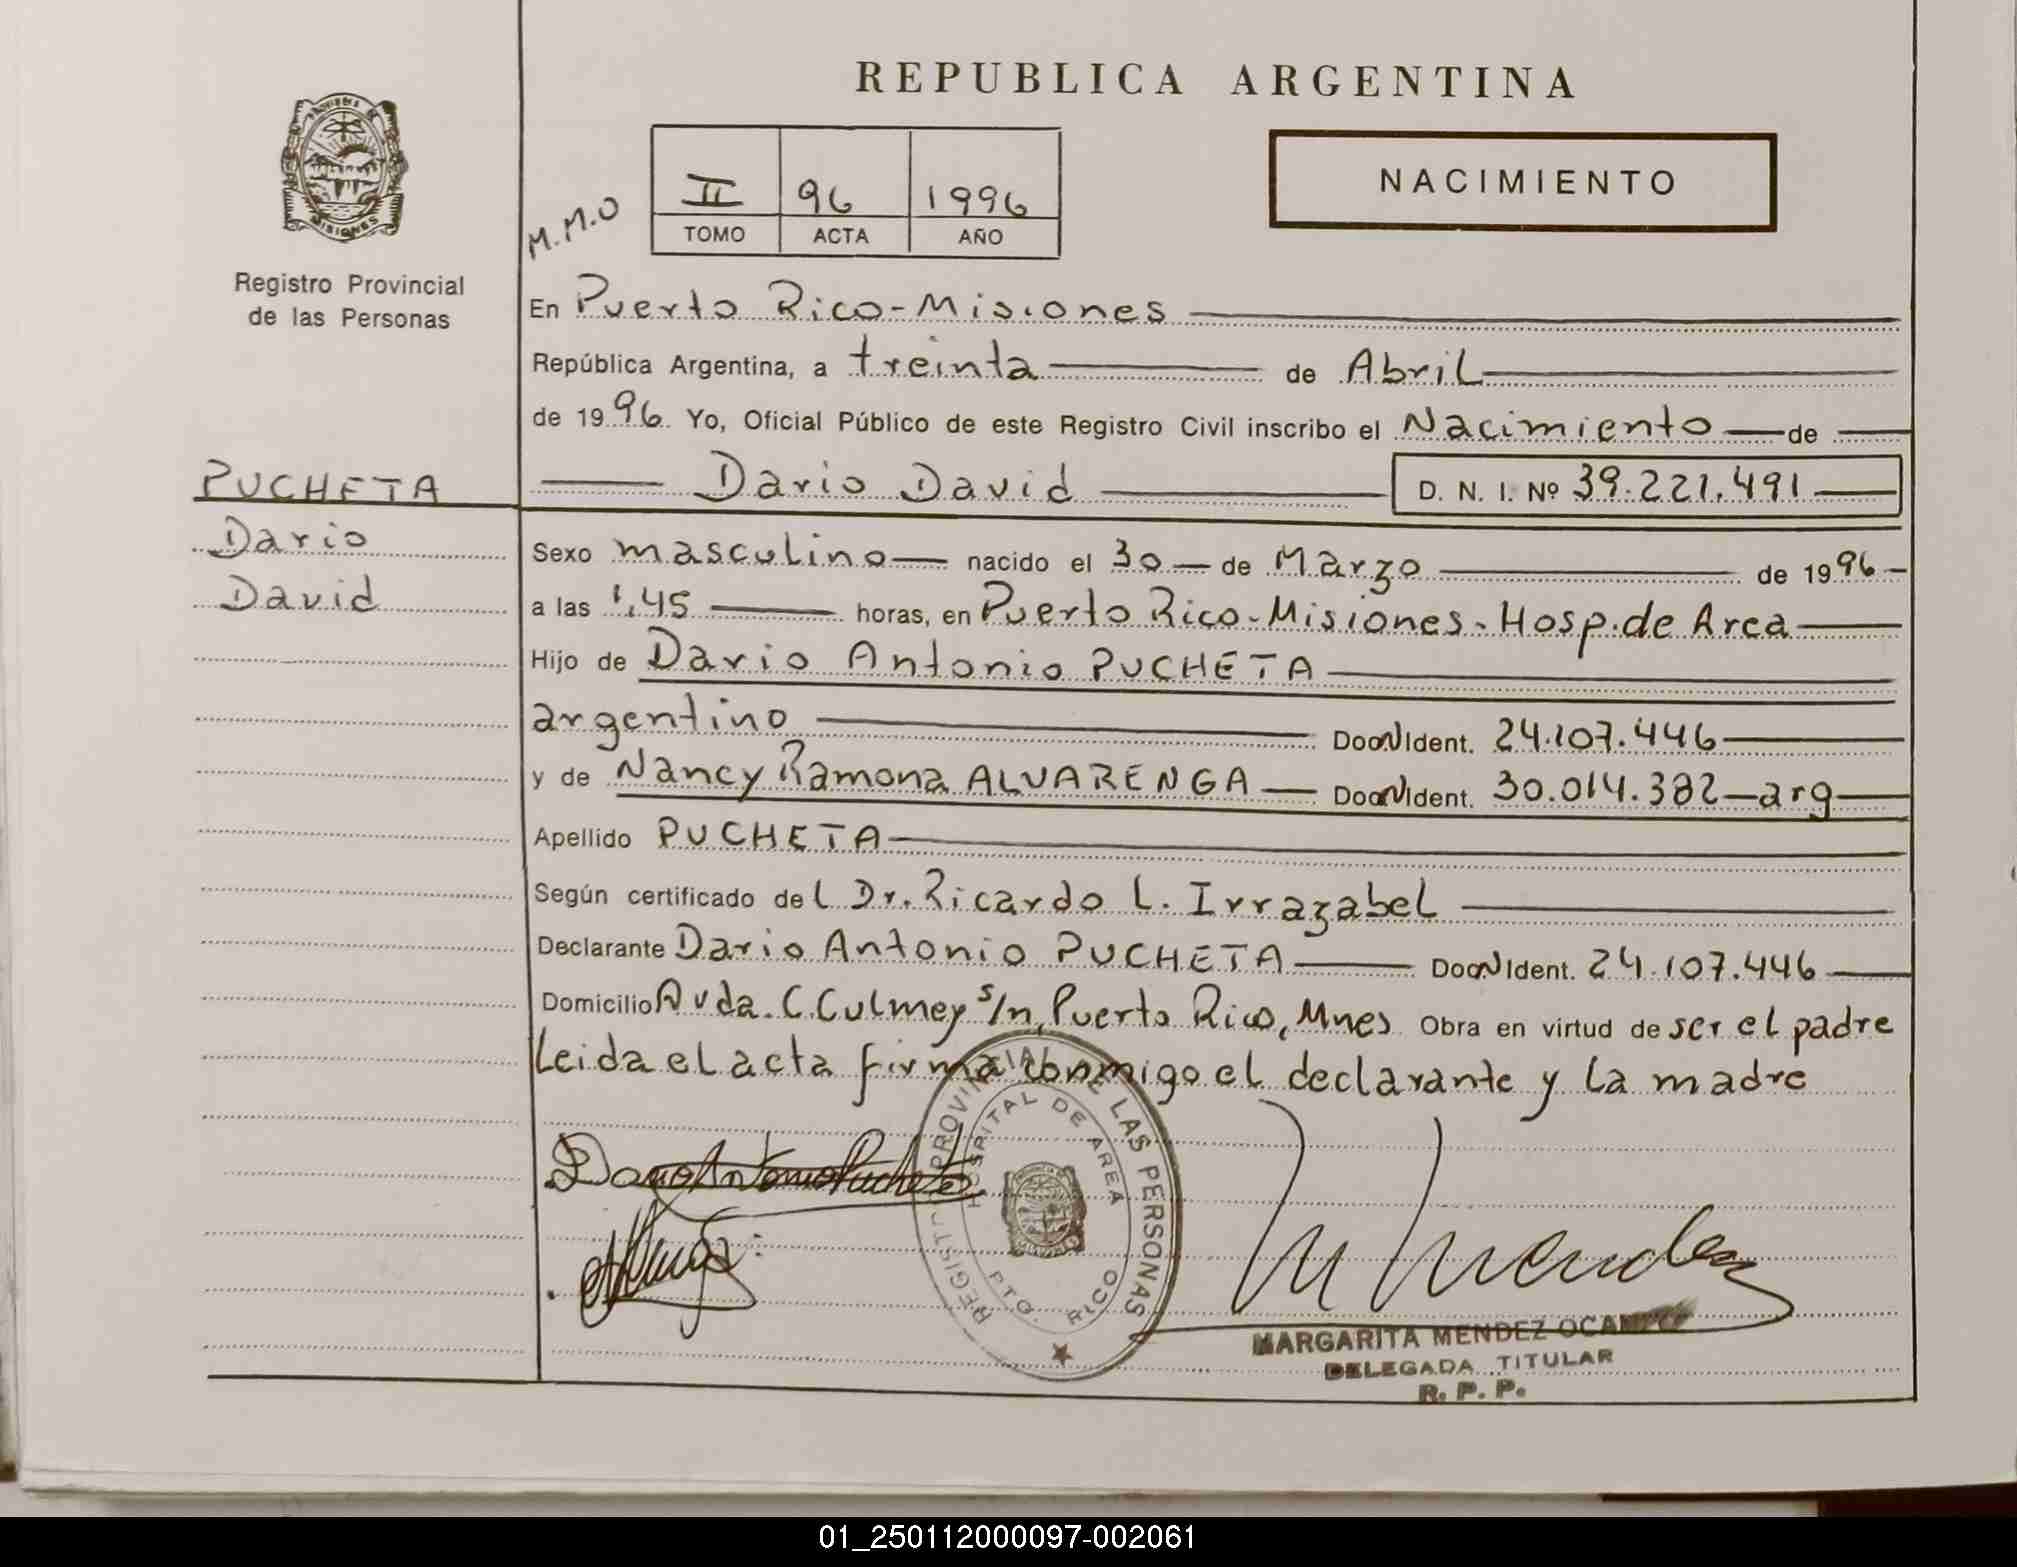 REPUBLICA ARGENTINA
NACIMIENTO
M.M.O
II 96 1996
TOMO ACTA AÑO
PROVINCIA
MISIONES
Registro Provincial
de las Personas
PUCHETA
Dario
David
En Puerto Rico-Misiones
República Argentina, a treinta de Abril
de 1996 Yo, Oficial Público de este Registro Civil inscribo el Nacimiento de
Dario David D. N. I. Nº 39.221.491
Sexo masculino nacido el 30 de Marzo de 1996
a las 1,45 horas, en Puerto Rico-Misiones-Hosp.de Area
Hijo de Dario Antonio PUCHETA
argentino Ident. 24.107.446
y de Nancy Ramona ALVARENGA Ident. 30.014.382-arg
Apellido PUCHETA
Según certificado del Dr. Ricardo L. Irrazabel
Declarante Dario Antonio PUCHETA Ident. 24.107.446
Domicilio Avda. C. Culmey s/n, Puerto Rico, Mnes Obra en virtud de ser el padre
Leida el acta firma conmigo el declarante y la madre
Dario Antonio Pucheta
REGISTRO PROVINCIAL DE LAS PERSONAS
HOSPITAL DE AREA
PTO. RICO
MARGARITA MENDEZ OCAMPO
DELEGADA TITULAR
R. P. P.
01_250112000097-002061